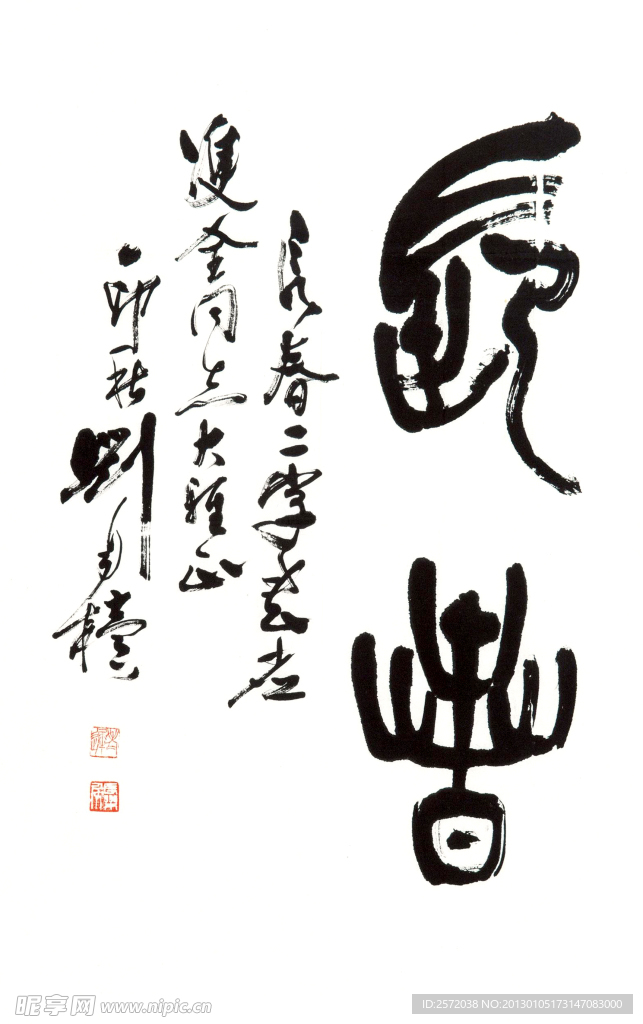 長春
长春二字
雙全同志大雅正
卯秋劉自櫝
昵享网 www.nipic.cn
ID:2572038 NO:20130105173147083000